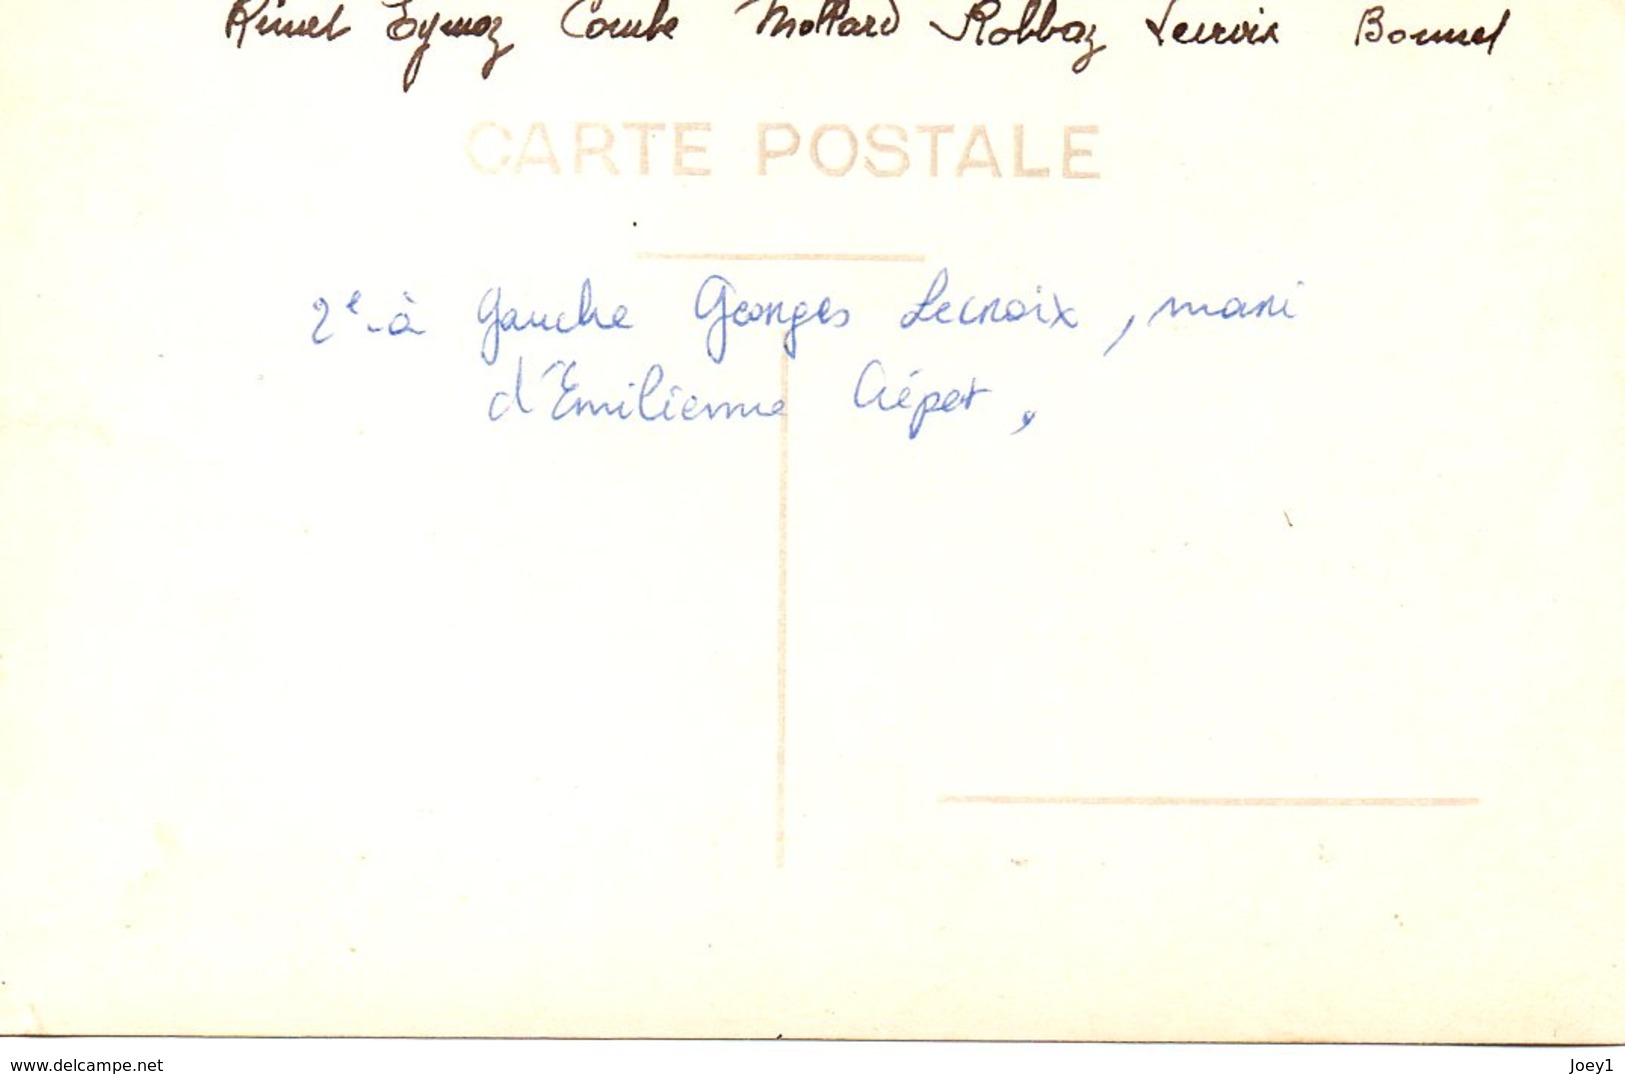 Rimet Eymoz Combe Mottard Robbaz Lecroix Bonnet
CARTE POSTALE
2e à gauche Georges Lecroix, mari
d'Emilienne Crépet,
www.delcampe.net
Joey1